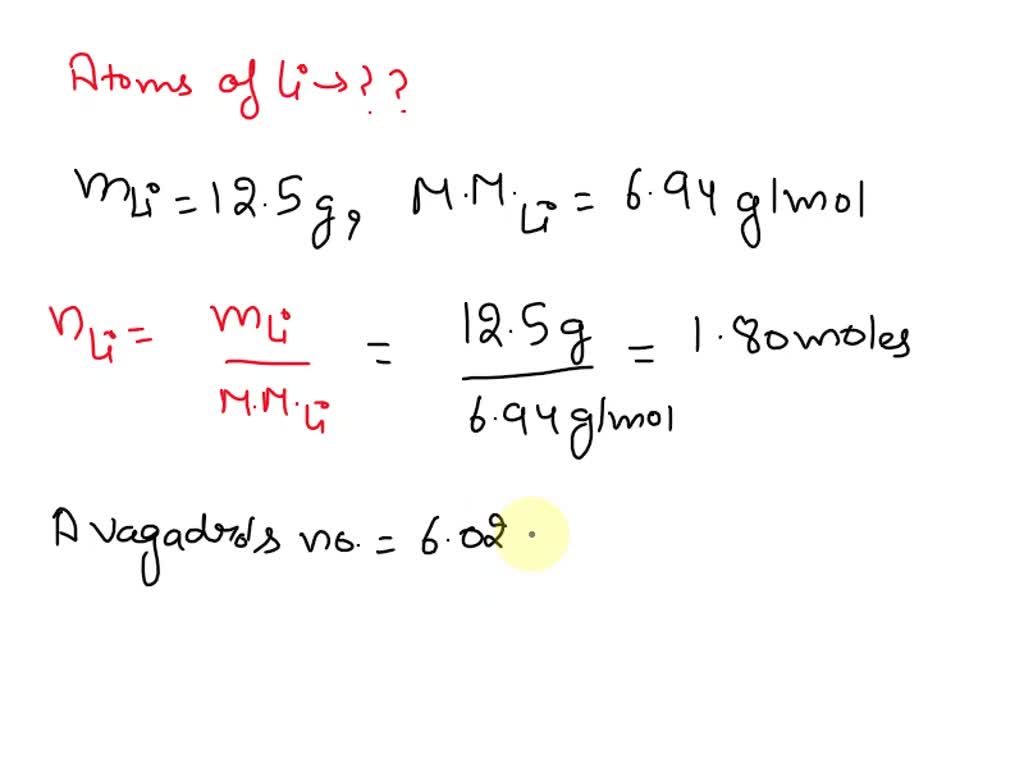 Atoms of Li → ??
mLi = 12.5 g, M.M.Li = 6.94 g/mol
nLi = mLi / M.M.Li = 12.5 g / 6.94 g/mol = 1.80 moles
Avagadro's no. = 6.02